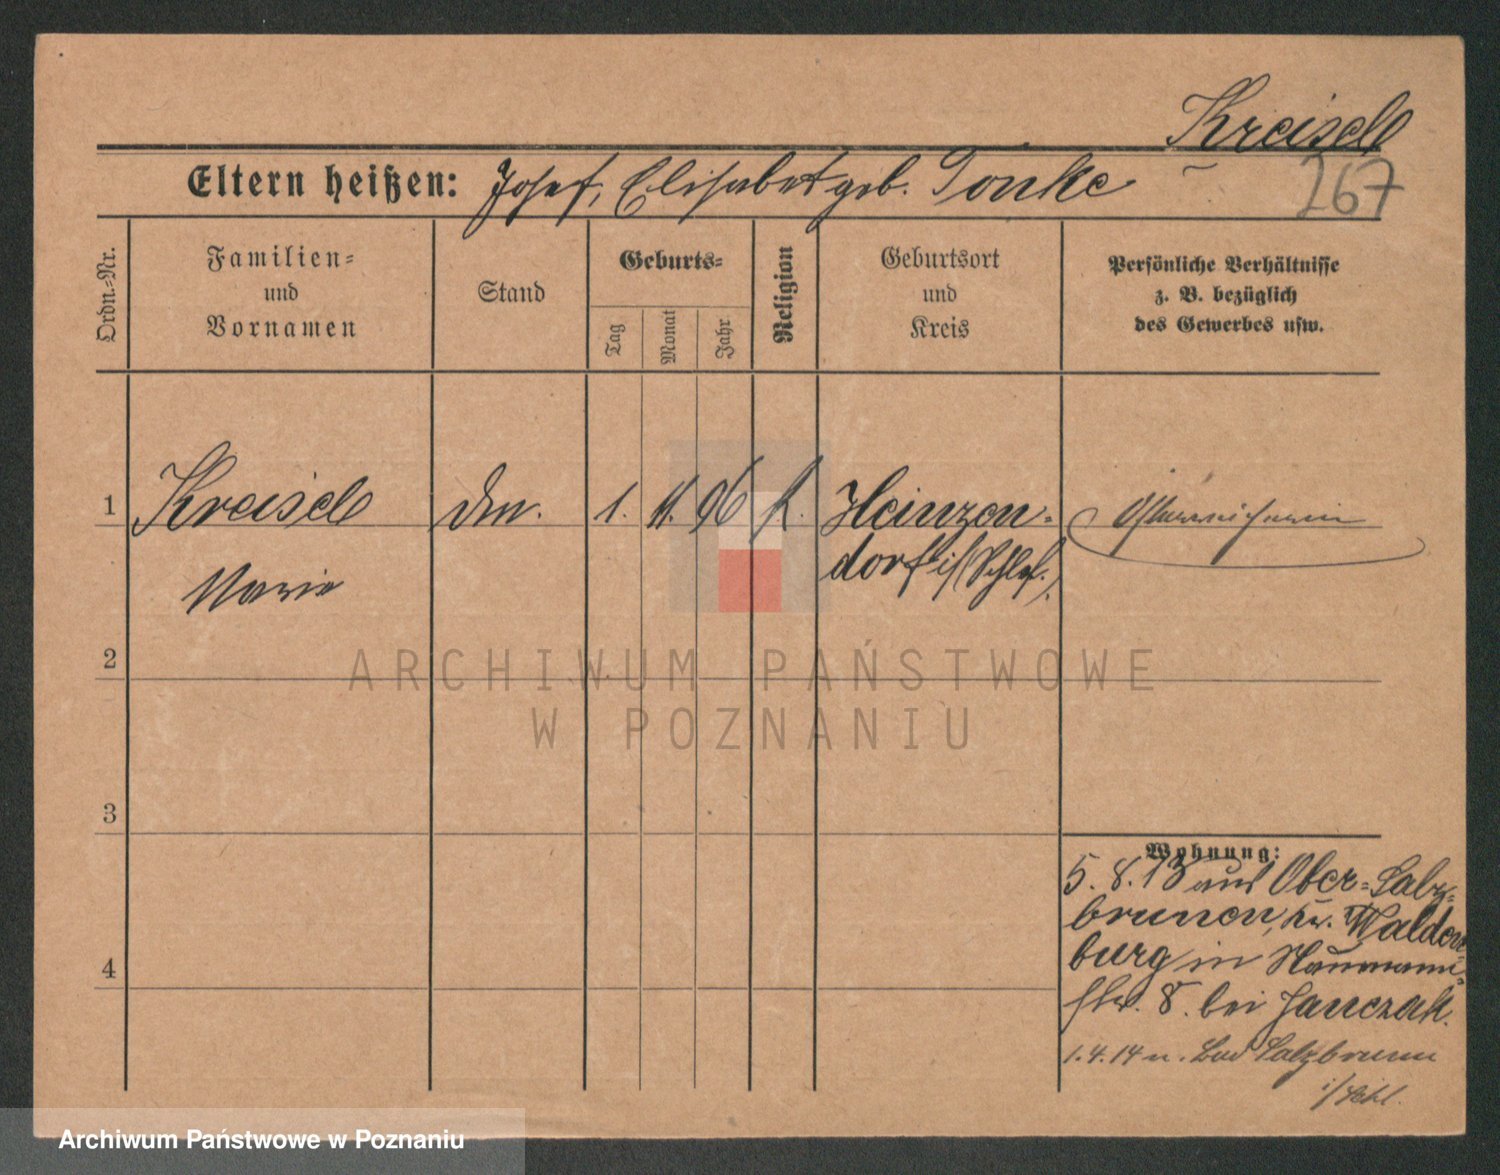 Kreisel
Eltern heißen: Josef, Elisabet geb. Tönke
267
Ordn.-Nr.
Familien-
und
Vornamen
Stand
Geburts-
Tag
Monat
Jahr
Religion
Geburtsort
und
Kreis
Persönliche Verhältnisse
z. B. bezüglich
des Gewerbes usw.
1
Kreisel
Marie
1. 11. 96
k.
Heinzen-
dorf i/Schles.
Österreicherin
2
3
4
Wohnung:
5. 8. 13 aus Ober-Salz-
brunnen, Kr. Walden-
burg in Naumann-
str. 8. bei Janczak.
1.4.14 n. Bad Salzbrunn
i/Schl.
ARCHIWUM PAŃSTWOWE
W POZNANIU
Archiwum Państwowe w Poznaniu